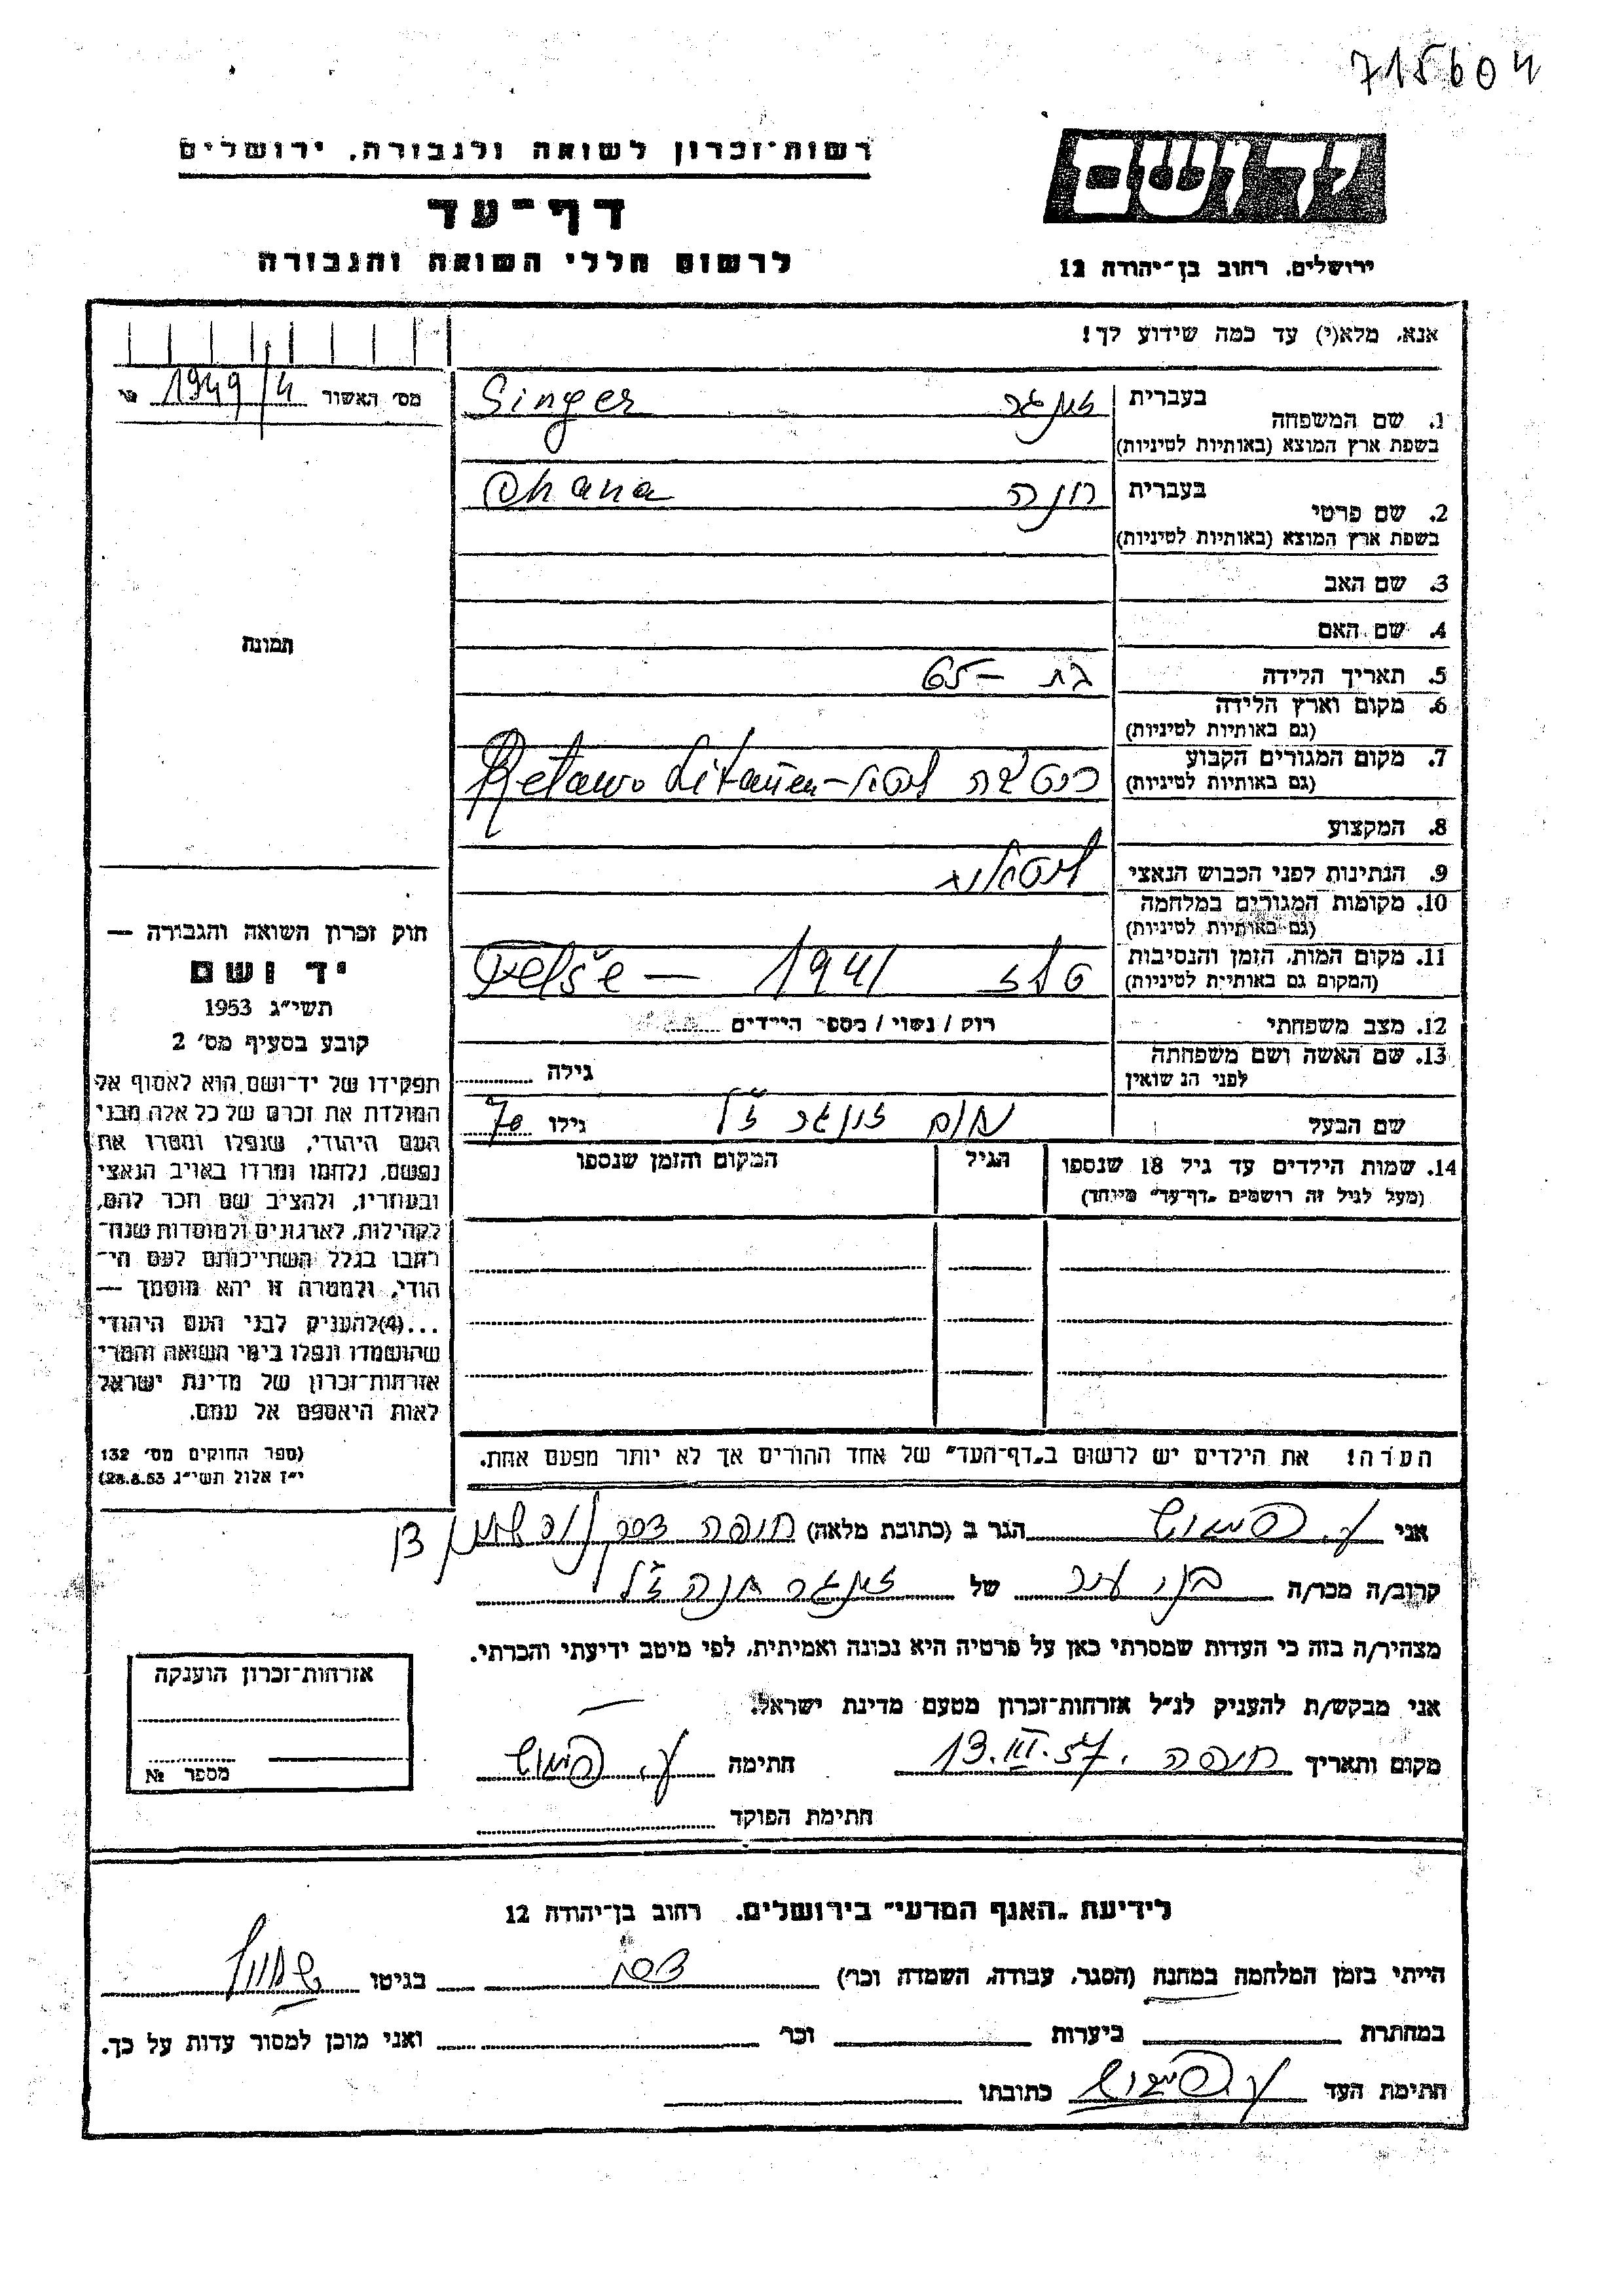 715604
רשות־זכרון לשואה ולגבורה, ירושלים
דף־עד
לרשום חללי השואה והגבורה
ידושם
ירושלים, רחוב בן־יהודה 12
אנא, מלא(י) עד כמה שידוע לך!
מס׳ האשור 1949/4
1. שם המשפחה
בעברית זינגר Singer
בשפת ארץ המוצא (באותיות לטיניות)
2. שם פרטי
בעברית חנה Chana
בשפת ארץ המוצא (באותיות לטיניות)
3. שם האב
4. שם האם
5. תאריך הלידה בת – 65
6. מקום וארץ הלידה
(גם באותיות לטיניות)
7. מקום המגורים הקבוע
(גם באותיות לטיניות) Retawo Litauen
8. המקצוע
9. הנתינות לפני הכבוש הנאצי
10. מקומות המגורים במלחמה
(גם באותיות לטיניות)
11. מקום המות, הזמן והנסיבות 1941 – Telše
(המקום גם באותיות לטיניות)
12. מצב משפחתי רוק / נשוי / מספר הילדים
13. שם האשה ושם משפחתה
לפני הנשואין גילה
שם הבעל זינגר ז״ל גילו 70
14. שמות הילדים עד גיל 18 שנספו הגיל המקום והזמן שנספו
(מעל לגיל זה רושמים „דף־עד״ מיוחד)
הערה! את הילדים יש לרשום ב„דף־העד״ של אחד ההורים אך לא יותר מפעם אחת.
תמונה
חוק זכרון השואה והגבורה —
יד ושם
תשי״ג 1953
קובע בסעיף מס׳ 2
תפקידו של יד־ושם הוא לאסוף אל
המולדת את זכרם של כל אלה מבני
העם היהודי, שנפלו ומסרו את
נפשם, נלחמו ומרדו באויב הנאצי
ובעוזריו, ולהציב שם וזכר להם,
לקהילות, לארגונים ולמוסדות שנח־
רבו בגלל השתייכותם לעם הי־
הודי, ולמטרה זו יהא מוסמך —
...(4)להעניק לבני העם היהודי
שהושמדו ונפלו בימי השואה והמרי
אזרחות־זכרון של מדינת ישראל
לאות היאספם אל עמם.
(ספר החוקים מס׳ 132
י״ז אלול תשי״ג 28.8.53)
אני הגר ב (כתובת מלאה) חיפה
קרוב/ה מכר/ה של זינגר חנה ז״ל
מצהיר/ה בזה כי העדות שמסרתי כאן על פרטיה היא נכונה ואמיתית, לפי מיטב ידיעתי והכרתי.
אני מבקש/ת להעניק לנ״ל אזרחות־זכרון מטעם מדינת ישראל.
מקום ותאריך חיפה, 13.III.57 חתימה
חתימת הפוקד
אזרחות־זכרון הוענקה
מספר №
לידיעת „האגף המדעי״ בירושלים, רחוב בן־יהודה 12
הייתי בזמן המלחמה במחנה (הסגר, עבודה, השמדה וכר׳) בגיטו
במחתרת ביערות וכר׳ ואני מוכן למסור עדות על כך.
חתימת העד כתובתו